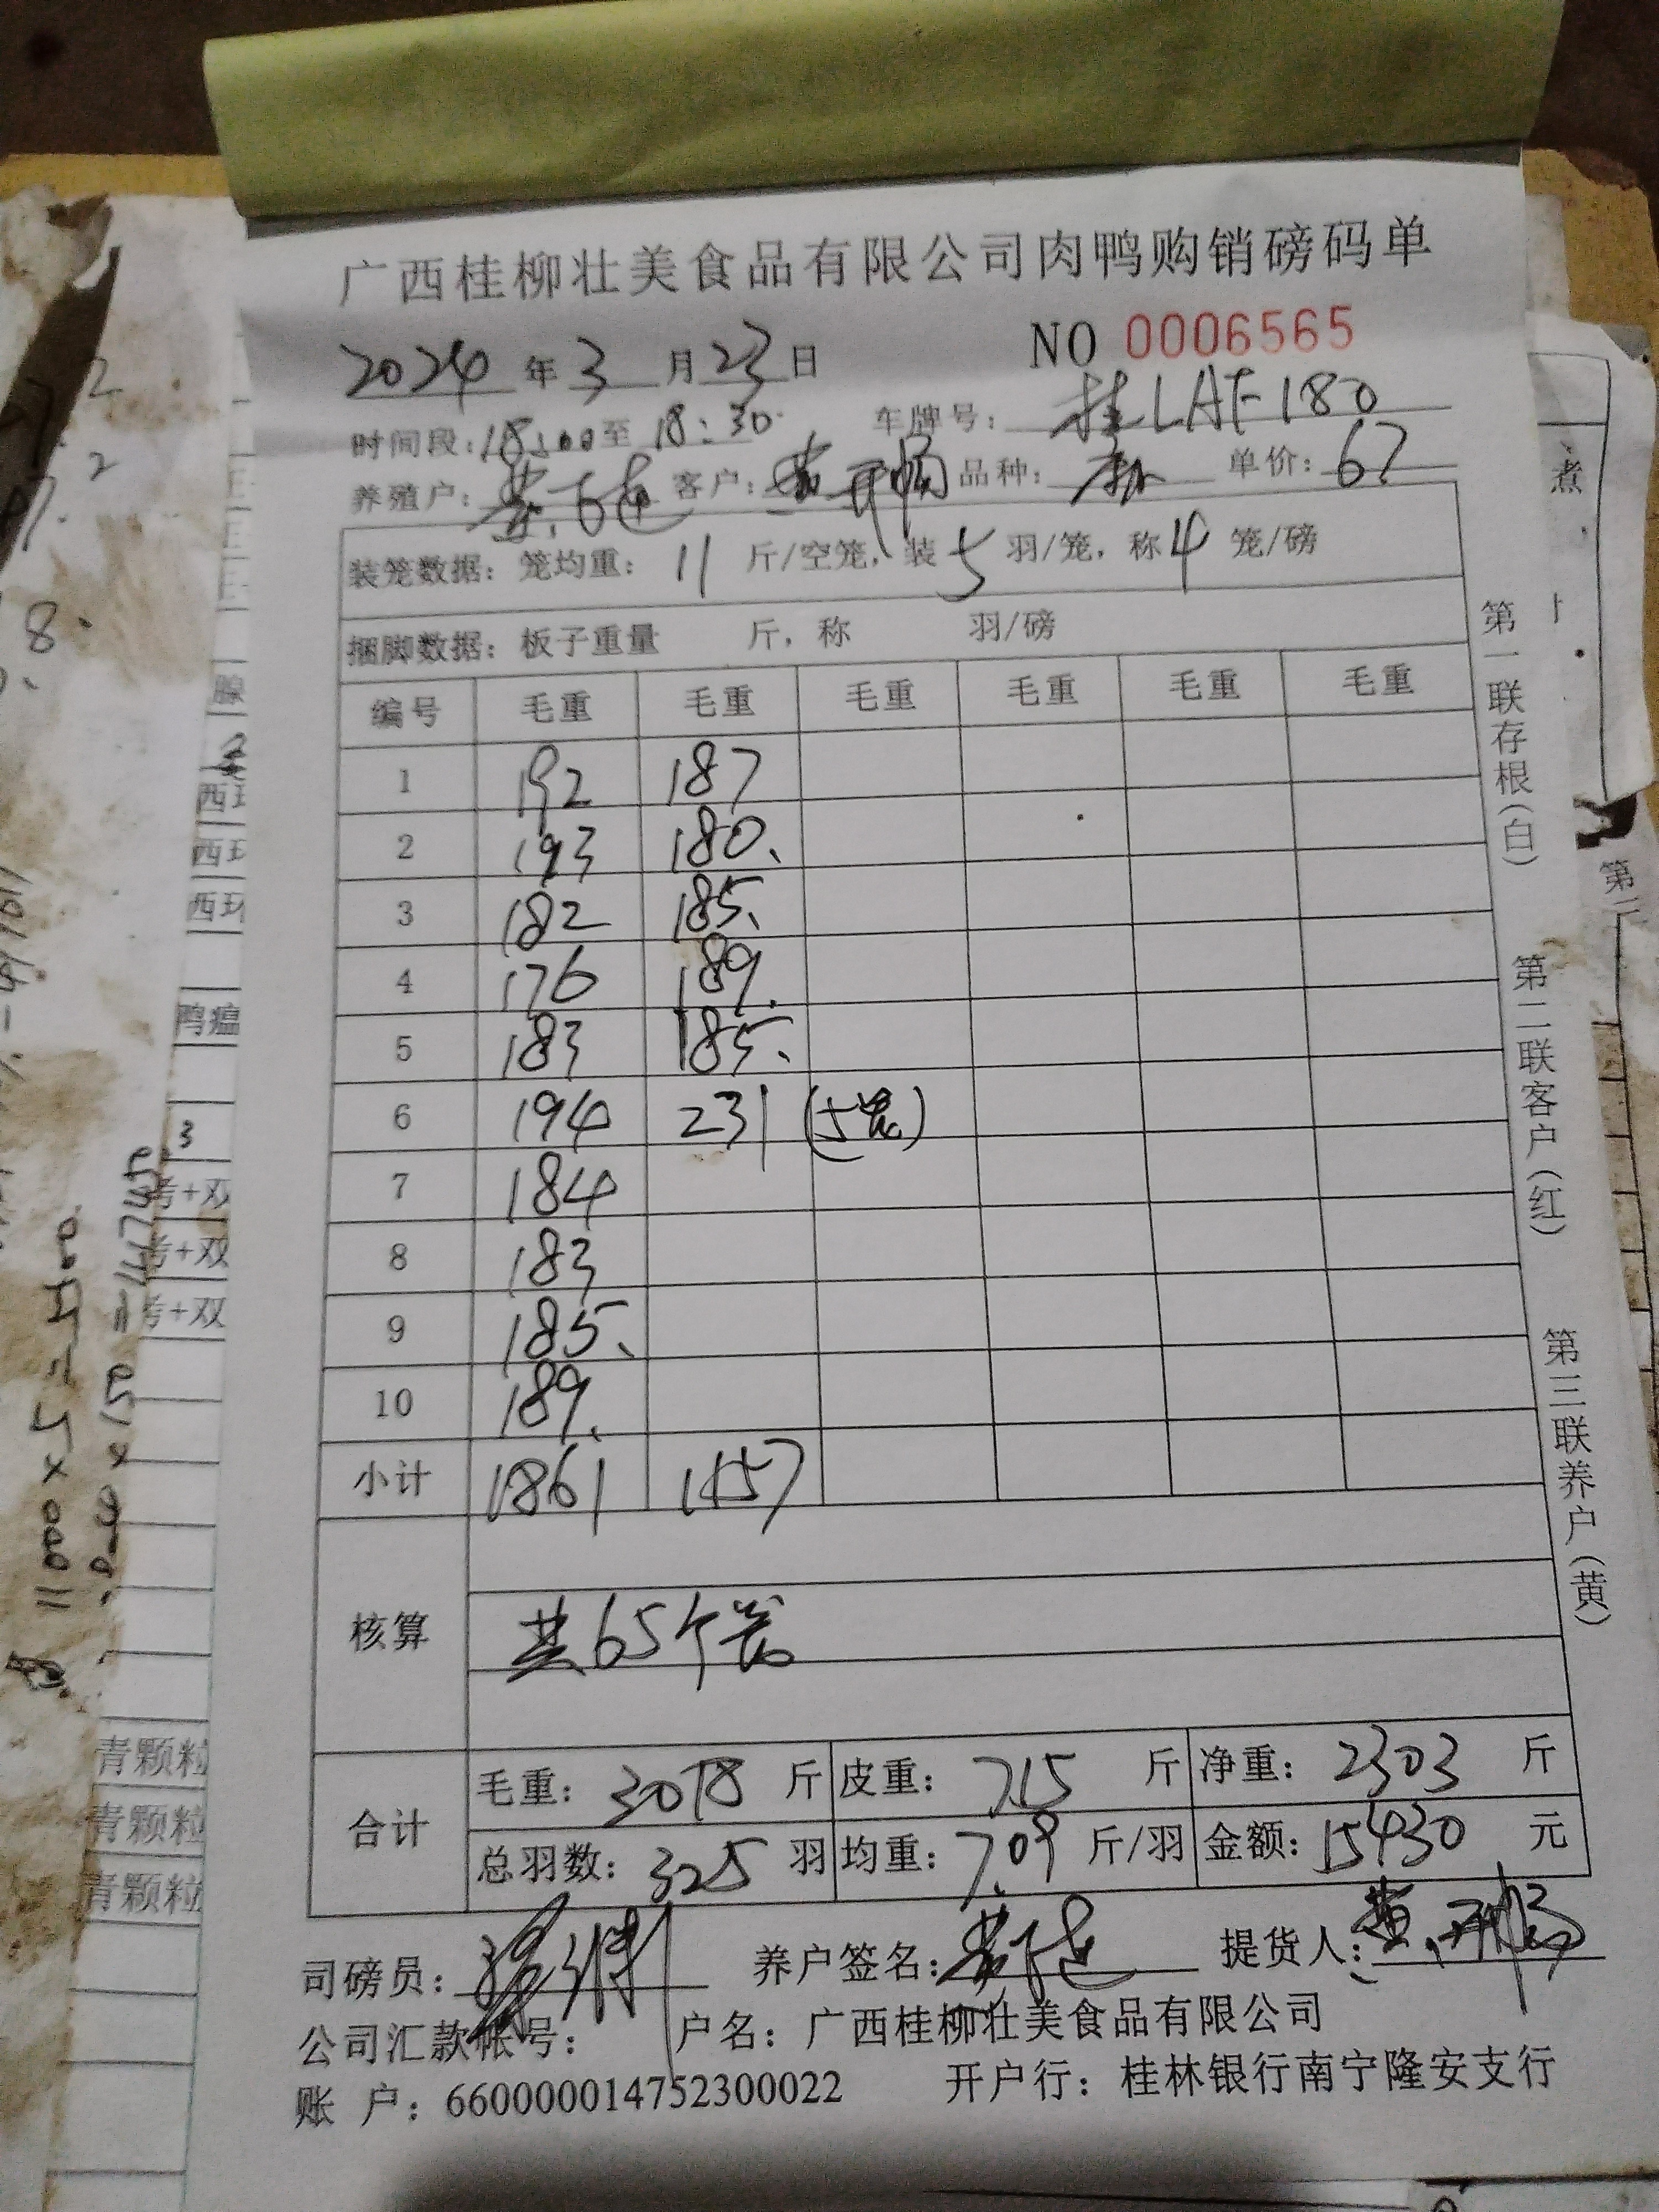 广西桂柳壮美食品有限公司肉鸭购销磅码单
NO 0006565
2024年3月23日
时间段:18:00至18:30 车牌号:桂LAF180
养殖户: 客户:黄开畅 品种: 单价:67
装笼数据:笼均重:11斤/空笼,装5羽/笼,称4笼/磅
捆脚数据:板子重量 斤,称 羽/磅
编号 毛重 毛重 毛重 毛重 毛重 毛重
1 192 187
2 193 180、
3 182 185、
4 176 189.
5 183 185、
6 194 231 (5笼)
7 184
8 183
9 185、
10 189、
小计 1861 1157
核算 共65个笼
合计 毛重:3018斤 皮重:715斤 净重:2303斤
总羽数:325羽 均重:7.09斤/羽 金额:15430元
司磅员: 养户签名: 提货人:黄开畅
公司汇款帐号: 户名:广西桂柳壮美食品有限公司
账 户:660000014752300022 开户行:桂林银行南宁隆安支行
第一联存根(白) 第二联客户(红) 第三联养户(黄)
腺
鸭瘟
3
考+双
考+双
考+双
青颗粒
青颗粒
青颗粒
煮